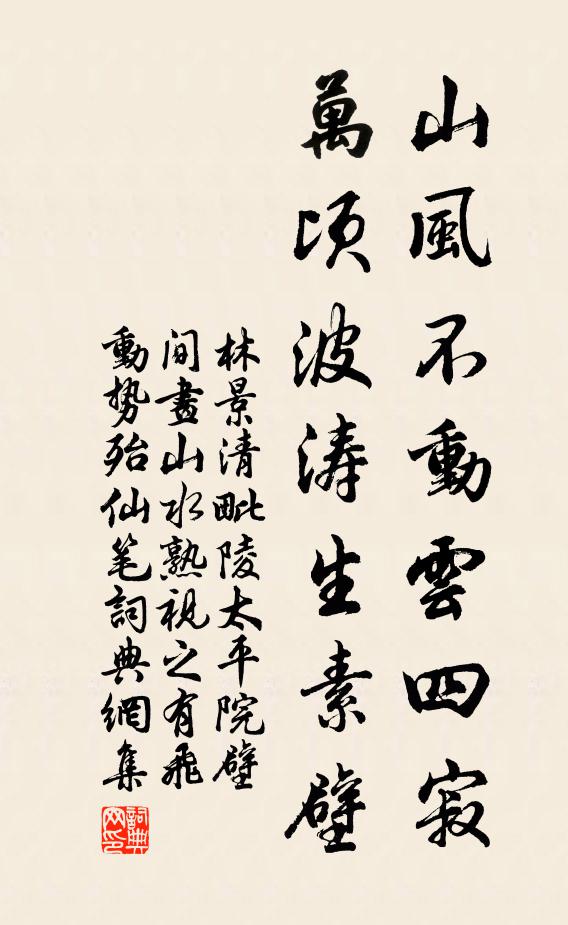 山風不動雲四寂
萬頃波濤生素壁
林景清毗陵太平院壁
间畫山水熟視之有飛
動势殆仙笔詞典網集
詞典网印